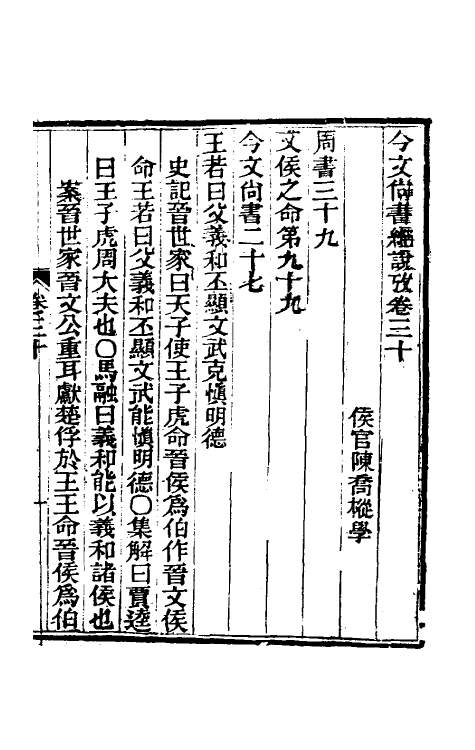 今文尚書經說攷卷三十
侯官陳喬樅學
周書三十九
文侯之命第九十九
今文尚書二十七
王若曰父義和丕顯文武克愼明德
史記晉世家曰天子使王子虎命晉侯爲伯作晉文侯
命王若曰父義和丕顯文武能愼明德〇集解曰賈逵
曰王子虎周大夫也〇馬融曰義和能以義和諸侯也
案晉世家晉文公重耳獻楚俘於王王命晉侯爲伯
卷三十
一